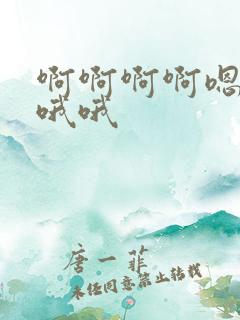 啊啊啊啊嗯
哦哦
唐一菲
未经同意禁止转载